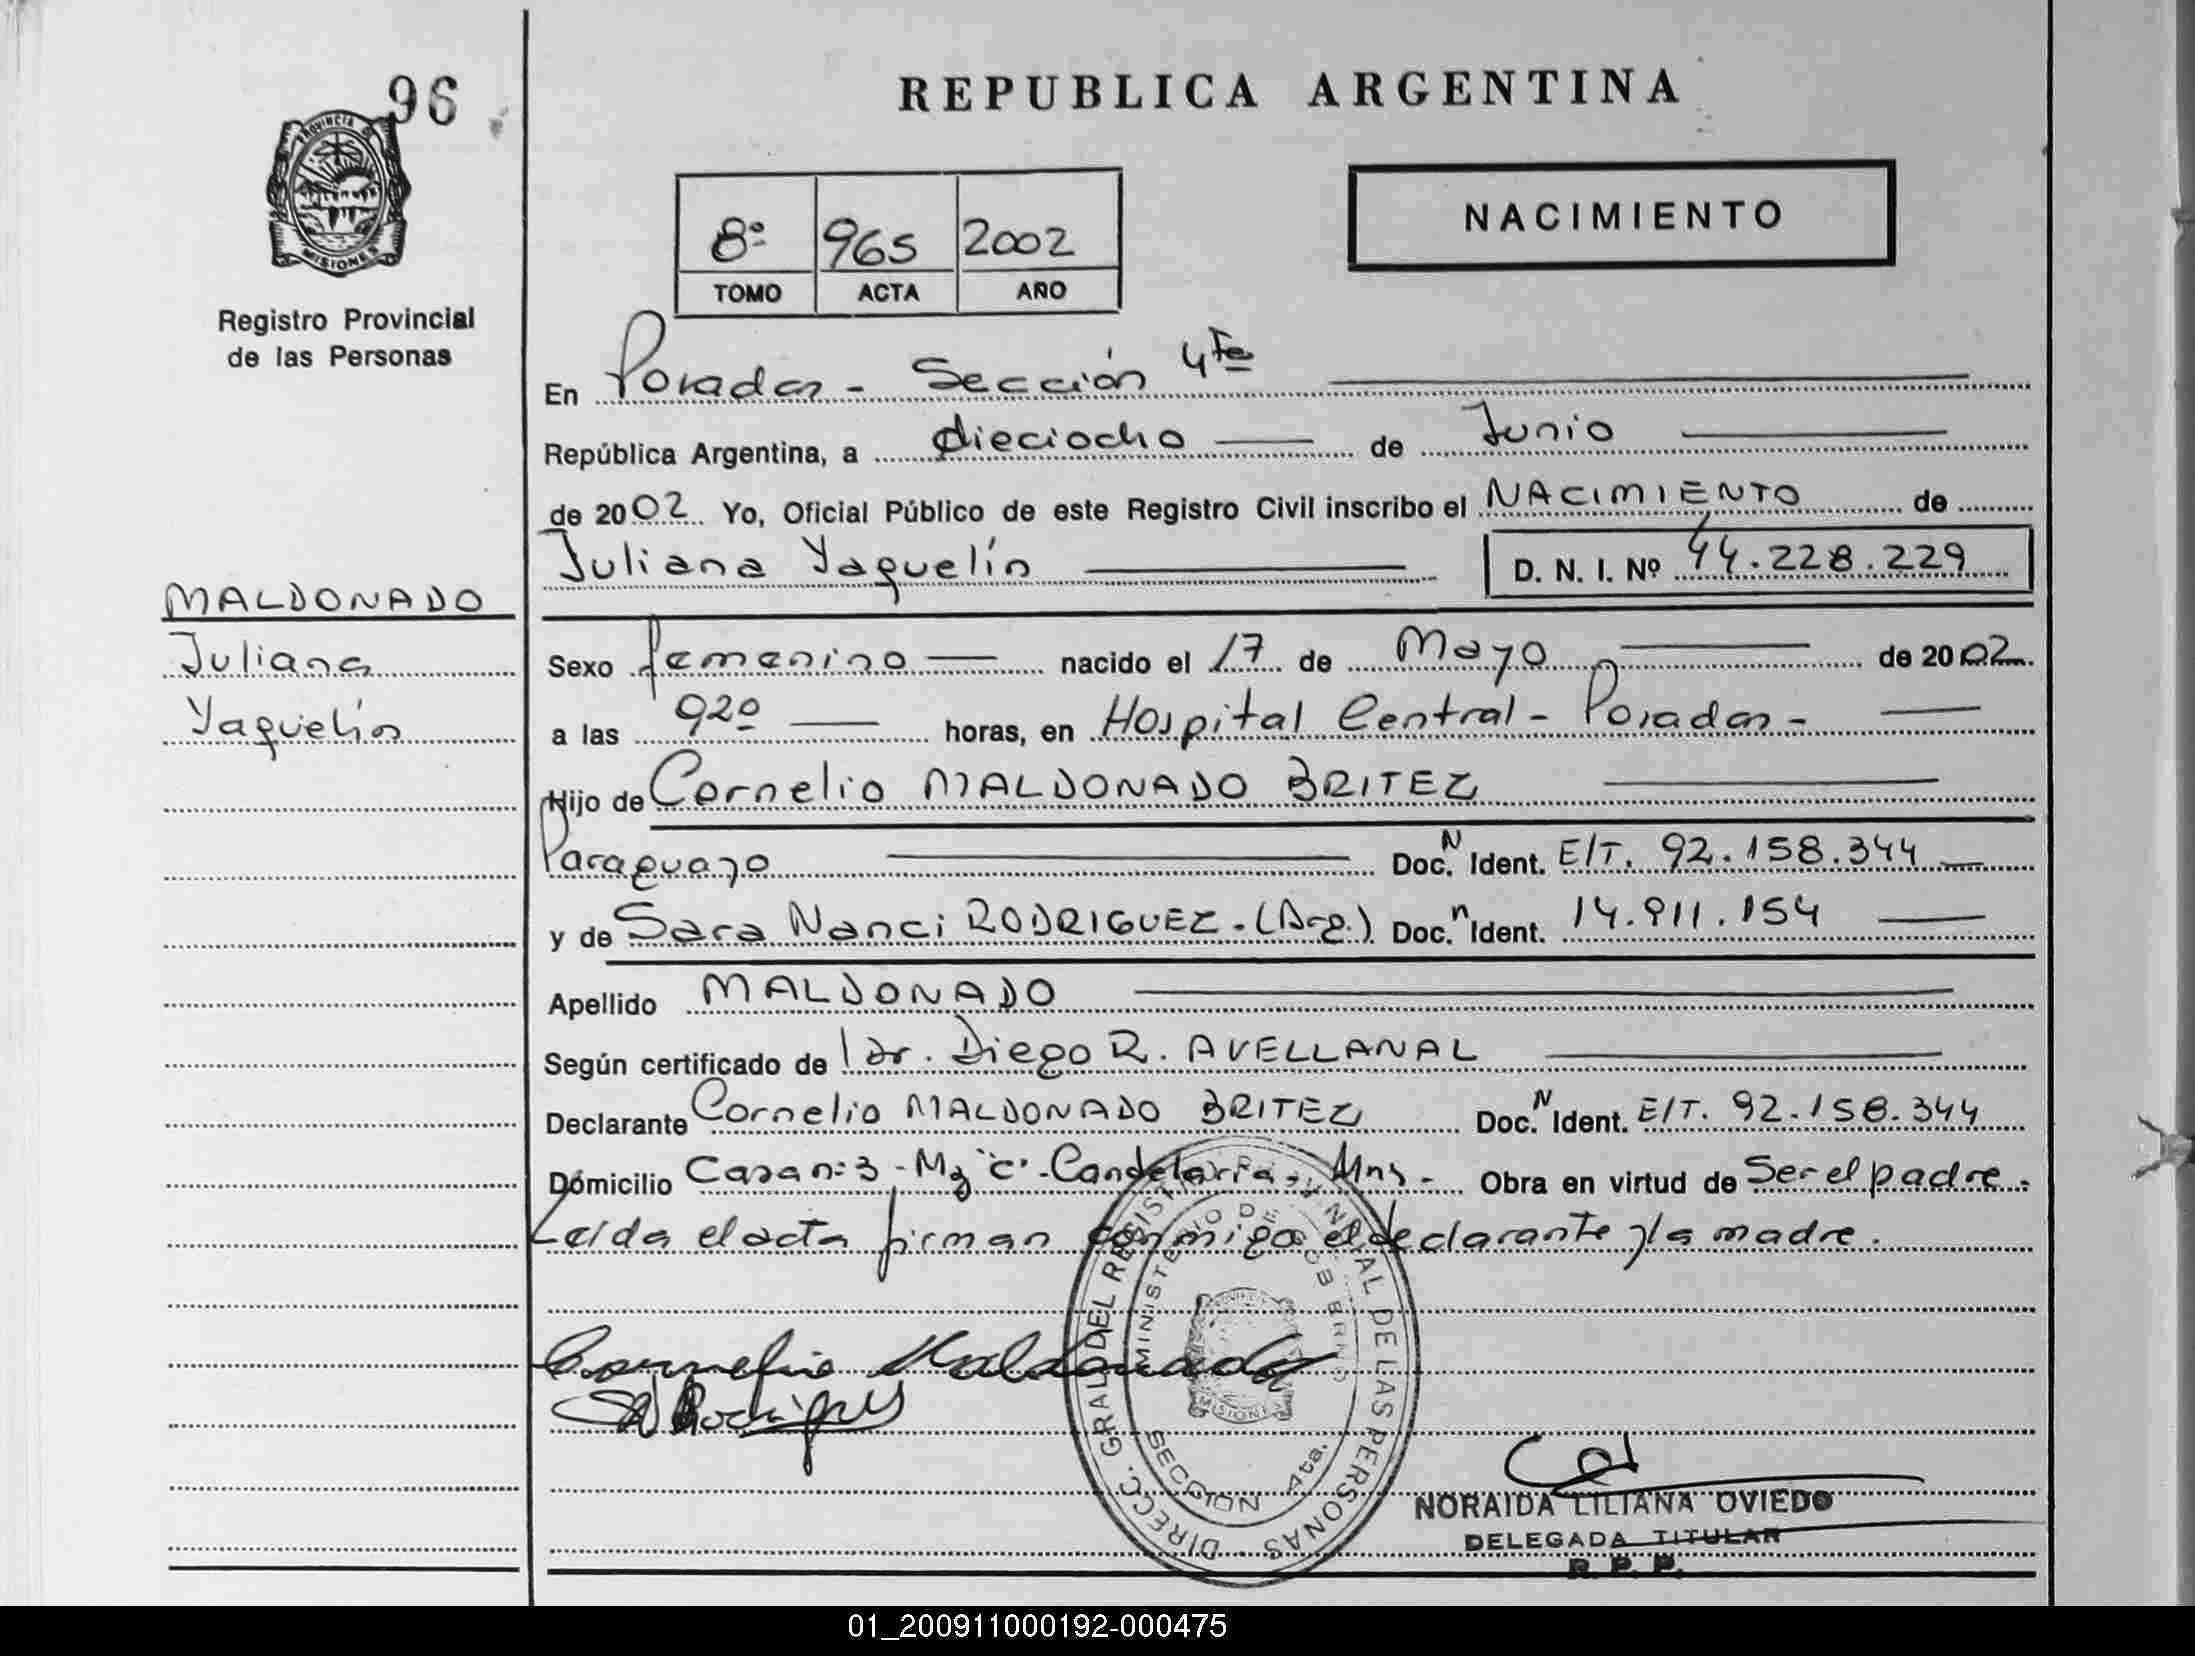 96
PROVINCIA DE
MISIONES
Registro Provincial
de las Personas
REPUBLICA ARGENTINA
8º 965 2002
TOMO ACTA AÑO
NACIMIENTO
En Posadas - Sección 4ta
República Argentina, a dieciocho de Junio
de 2002 Yo, Oficial Público de este Registro Civil inscribo el NACIMIENTO de
Juliana Yaquelín D. N. I. Nº 44.228.229
MALDONADO
Juliana
Yaquelín
Sexo femenino nacido el 17 de Mayo de 2002
a las 920 horas, en Hospital Central - Posadas -
Hijo de Cornelio MALDONADO BRITEZ
Paraguayo Doc. N Ident. E/T. 92.158.344
y de Sara Nanci RODRIGUEZ.(Arg.) Doc. n Ident. 14.911.154
Apellido MALDONADO
Según certificado de Dr. Diego R. AVELLANAL
Declarante Cornelio MALDONADO BRITEZ Doc. N Ident. E/T. 92.158.344
Domicilio Casa nº 3 - Mz "C" - Candelaria - Mns - Obra en virtud de Ser el padre.
Leída el acta firman conmigo el declarante y la madre.
Cornelio Maldonado
DIRECC. GRAL DEL REGISTRO PROVINCIAL DE LAS PERSONAS
MINISTERIO DE GOBIERNO
MISIONES
SECCION 4ta.
NORAIDA LILIANA OVIEDO
DELEGADA TITULAR
R. P. P.
01_200911000192-000475